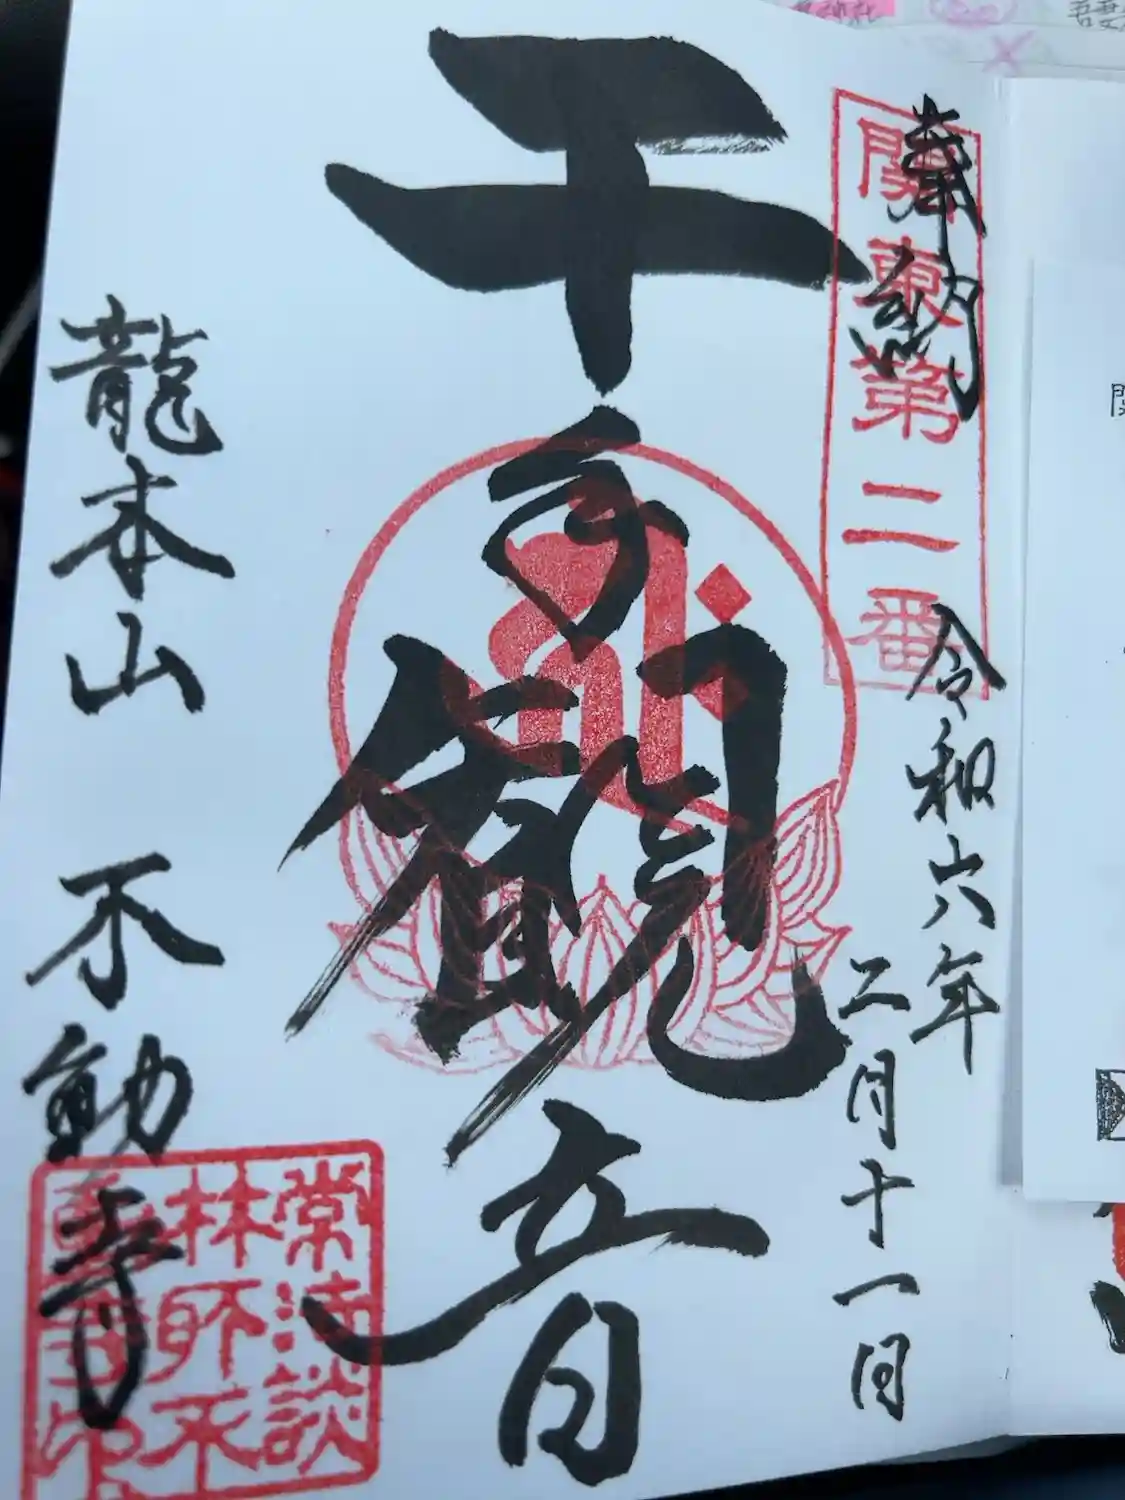 奉納
関東第二番
令和六年
二月十一日
千手観音
龍本山 不動寺
常法談
林所不